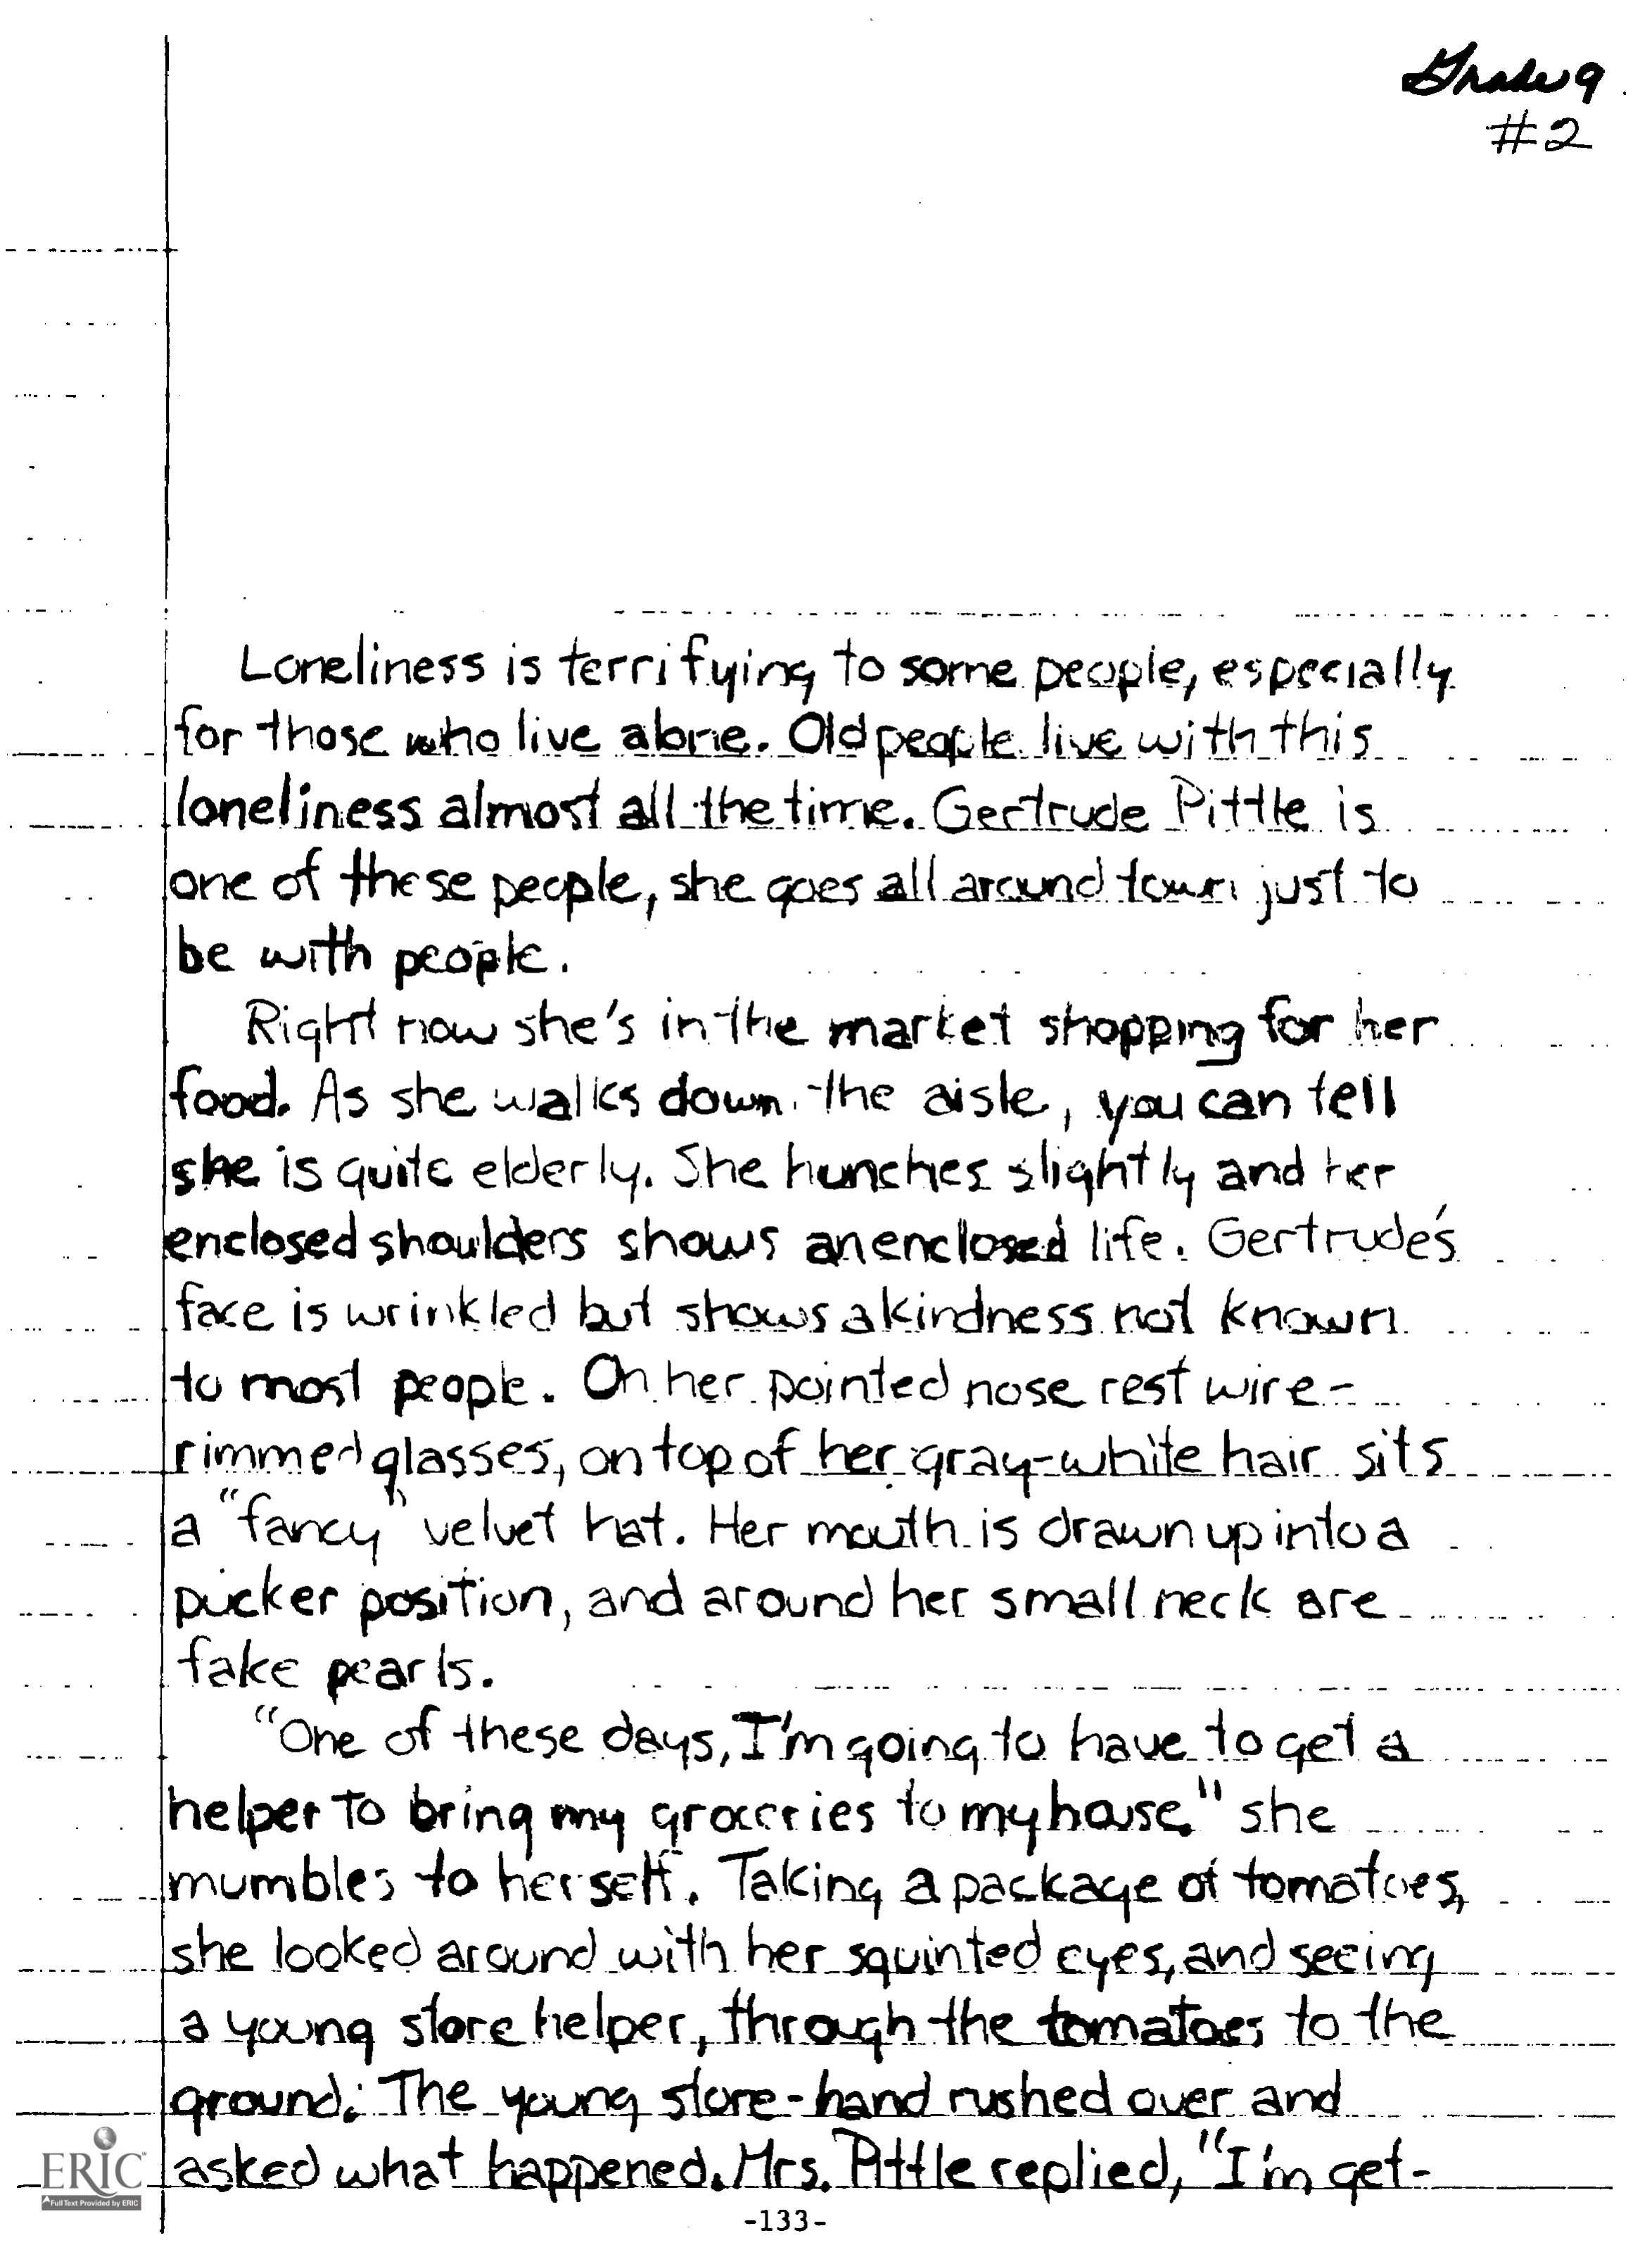 Grade 9
#2
Loneliness is terrifying to some people, especially
for those who live alone. Old people live with this
loneliness almost all the time. Gertrude Pittle is
one of these people, she goes all around town just to
be with people.
Right now she's in the market shopping for her
food. As she walks down the aisle, you can tell
she is quite elderly. She hunches slightly and her
enclosed shoulders shows an enclosed life. Gertrude's
face is wrinkled but shows a kindness not known
to most people. On her pointed nose rest wire-
rimmed glasses, on top of her gray-white hair sits
a "fancy" velvet hat. Her mouth is drawn up into a
pucker position, and around her small neck are
fake pearls.
"One of these days, I'm going to have to get a
helper to bring my groceries to my house." she
mumbles to herself. Taking a package of tomatoes,
she looked around with her squinted eyes, and seeing
a young store helper, through the tomatoes to the
ground. The young store-hand rushed over and
asked what happened. Mrs. Pittle replied, "I'm get-
ERIC
Full Text Provided by ERIC
-133-